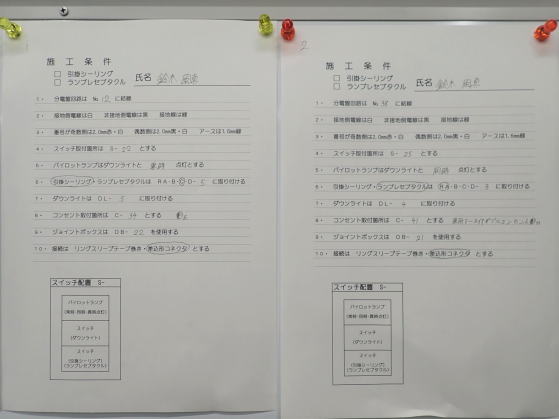 1
施工条件
□ 引掛シーリング
□ ランプレセプタクル
氏名 鈴木
1. 分電盤回路は No. 12 に結線
2. 接地側電線は白 非接地側電線は黒 接地線は緑
3. 番号が奇数側は2.0mm赤・白 偶数側は2.0mm黒・白 アースは1.6mm緑
4. スイッチ取付箇所は S- 22 とする
5. パイロットランプはダウンライトと 常時 点灯とする
6. 引掛シーリング・ランプレセプタクルは RA・B・C・D- 5 に取り付ける
7. ダウンライトは DL- 5 に取り付ける
8. コンセント取付箇所は C- 34 とする
9. ジョイントボックスは OB- 22 を使用する
10. 接続は リングスリーブテープ巻き・差込形コネクタ とする
スイッチ配置 S-
パイロットランプ
(常時・同時・異時点灯)
スイッチ
(ダウンライト)
スイッチ
(引掛シーリング)
(ランプレセプタクル)
2
施工条件
□ 引掛シーリング
□ ランプレセプタクル
氏名 鈴木
1. 分電盤回路は No. 38 に結線
2. 接地側電線は白 非接地側電線は黒 接地線は緑
3. 番号が奇数側は2.0mm赤・白 偶数側は2.0mm黒・白 アースは1.6mm緑
4. スイッチ取付箇所は S- 25 とする
5. パイロットランプはダウンライトと 同時 点灯とする
6. 引掛シーリング・ランプレセプタクルは RA・B・C・D- 3 に取り付ける
7. ダウンライトは DL- 4 に取り付ける
8. コンセント取付箇所は C- 41 とする
9. ジョイントボックスは OB- 21 を使用する
10. 接続は リングスリーブテープ巻き・差込形コネクタ とする
スイッチ配置 S-
パイロットランプ
(常時・同時・異時点灯)
スイッチ
(ダウンライト)
スイッチ
(引掛シーリング)
(ランプレセプタクル)